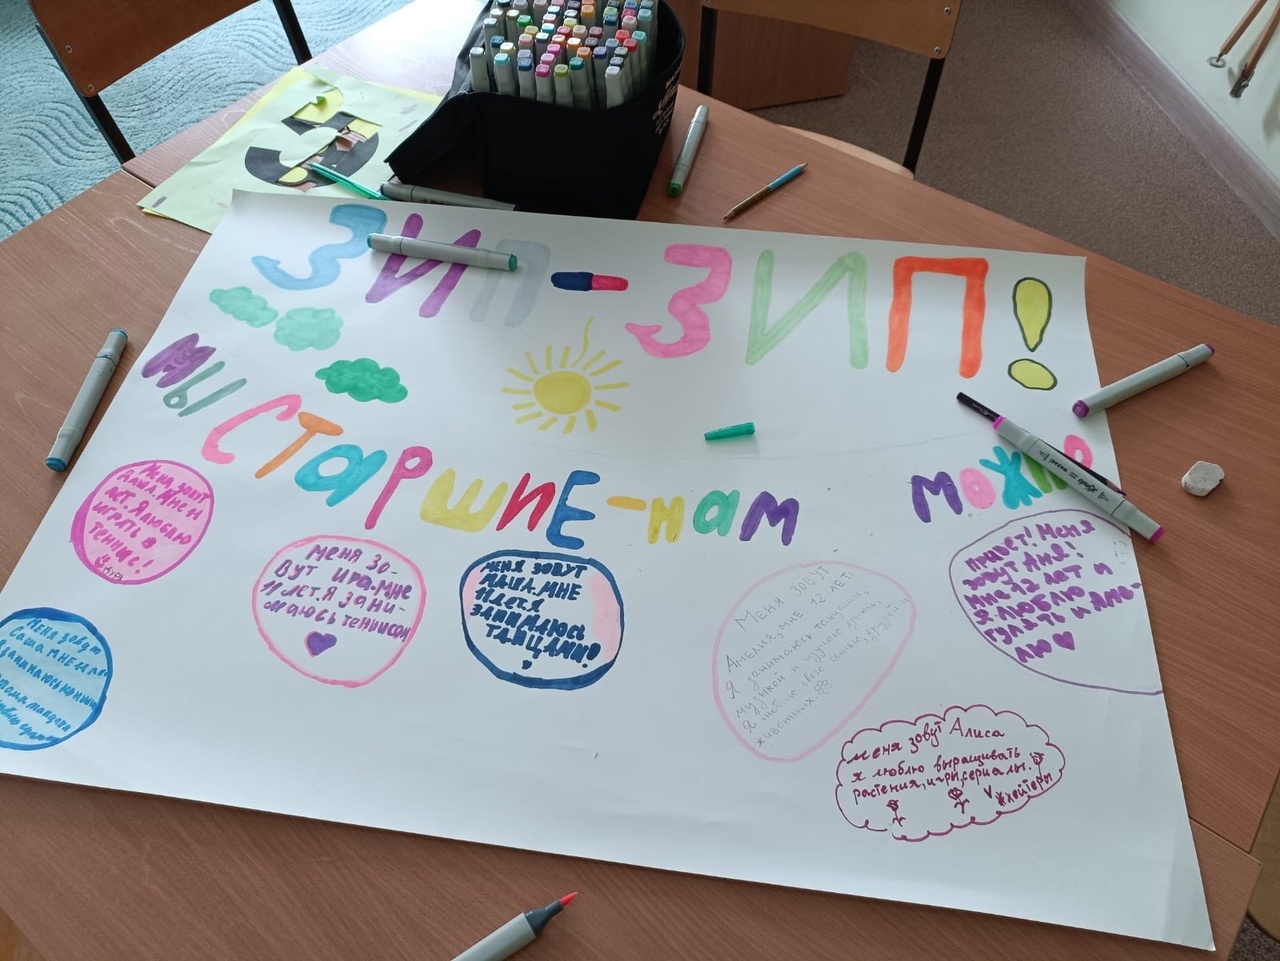 ЗИП-ЗИП!
МЫ СТАРШИЕ-НАМ МОЖНО
МЕНЯ ЗОВУТ
ДАША. МНЕ 11
ЛЕТ. Я ЛЮБЛЮ
ИГРАТЬ В
ТЕННИС!
МЕНЯ ЗО-
ВУТ ИРА. МНЕ
11 ЛЕТ. Я ЗАНИ-
МАЮСЬ ТЕННИСОМ
МЕНЯ ЗОВУТ
МАША. МНЕ
11 ЛЕТ. Я
ЗАНИМАЮСЬ
ТАНЦАМИ!
МЕНЯ ЗОВУТ
АМЕЛИЯ, МНЕ 12 ЛЕТ!
Я занимаюсь танцами,
музыкой и изучаю языки.
Я люблю свою семью, друзей и
животных.
ПРИВЕТ! МЕНЯ
ЗОВУТ АНЯ!
МНЕ 12 ЛЕТ И
Я ЛЮБЛЮ
ГУЛЯТЬ И
ЛЮ
Меня зовут
Саша. МНЕ
Я занимаюсь
меня зовут Алиса
я люблю выращивать
растения, игры, сериалы.
хейтеры